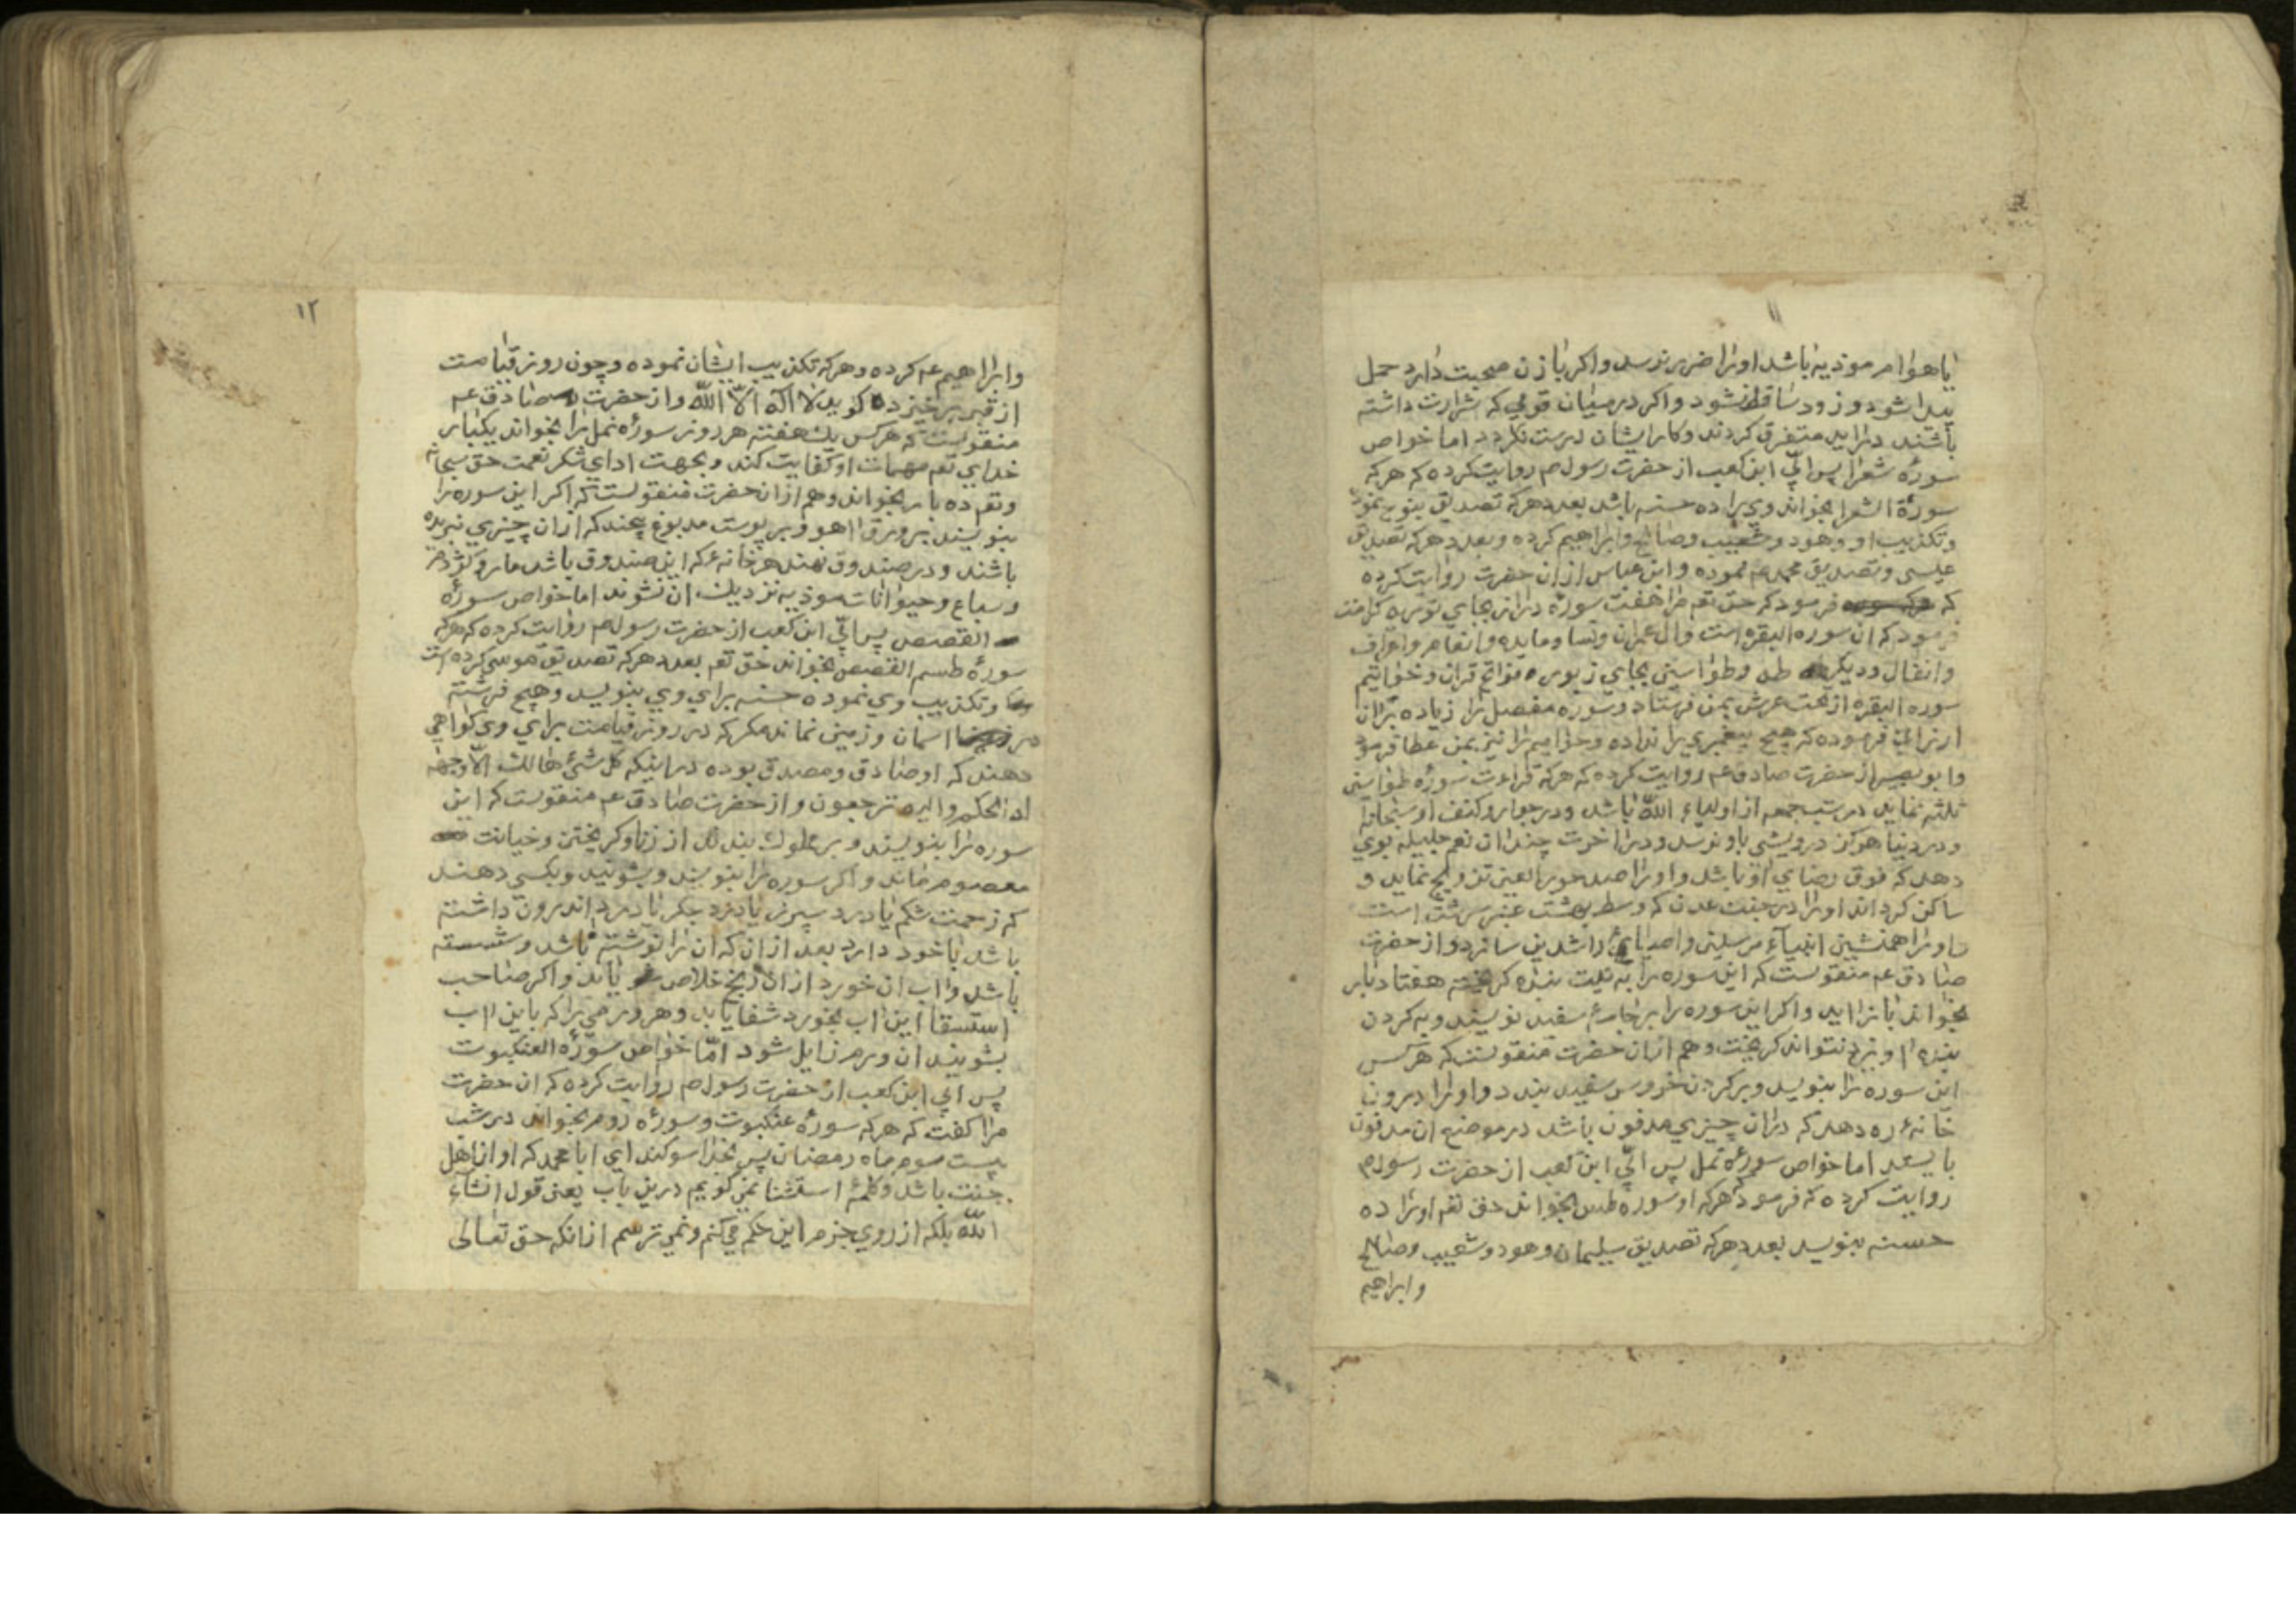 ۱۱
یا هوام موذیه باشد اورا ضرر نرسد واکر با زن صحبت دارد حمل
پیدا شود و زود ساقط شود واکر در میان قومی که شرارت داشته
باشند دراید متفرق کردند وکار ایشان درست نکردد اما خواص
سورهٔ شعرا پس ابّی ابن کعب از حضرت رسول ص روایت کرده که هرکه
سورة الشعرا بخواند ویرا ده حسنه باشد بعدد هرکه تصدیق بنوح نموده
وتکذیب او وهود وشعیب وصالح وابراهیم کرده وبعدد هرکه تصدیق
عیسی وتصدیق محمد ص نموده وابن عباس از ان حضرت روایت کرده
که فرمود که حق تعم مرا هفت سورهٔ دراز بجای توریه کرامت
فرمود که ان سوره البقره است وال عمران ونسا ومایده وانعام واعراف
وانفال ودیکر طه وطواسین بجای زبور و فواتح قران وخواتیم
سوره البقره از تحت عرش بمن فرستاد وسوره مفصل را زیاده بران
ارزانی فرموده که هیچ پیغمبری را نداده وحوامیم را نیز بمن عطا فرمود
وابوبصیر از حضرت صادق عم روایت کرده که هرکه قراءت سورهٔ طواسین
ثلثه نماید در شب جمعه از اولیاء الله باشد ودر جوار وکنف او سبحانه
ودر دنیا هرکز درویشی باو نرسد ودر اخرت چندان نعم جلیله بوی
دهد که فوق رضای او باشد واورا صد حور العین تزویج نماید و
ساکن کرداند اورا در جنت عدن که وسط بهشت عنبر سرشت است
واورا همنشین انبیآء مرسلین واوصیای راشدین سازد واز حضرت
صادق عم منقولست که این سوره را به نیت بندهٔ کریخته هفتاد بار
بخواند باز اید واکر این سوره را بر خامهٔ سفید نویسند وبه کردن
بنده اویزد نتواند کریخت وهم از ان حضرت منقولست که هر کس
این سوره را بنویسد وبر کردن خروس سفید بندد واورا درون
خانهٔ ره دهد که دران چیزی مدفون باشد در موضع ان مدفون
بایستد اما خواص سورهٔ نمل پس ابّی ابن کعب از حضرت رسول ص
روایت کرده که فرمود هرکه او سوره طس بخواند حق تعم اورا ده
حسنه بنویسد بعدد هرکه تصدیق سلیمان وهود وشعیب وصالح
وابراهیم
۱۲
وابراهیم عم کرده وهرکه تکذیب ایشان نموده وچون روز قیامت
از قبر برخیزد کوید لا اله الّا اللّه واز حضرت صادق عم
منقولست که هرکس یک هفته هر روز سورهٔ نمل را بخواند یکبار
خدای تعم مهمات او کفایت کند وبجهت ادای شکر نعمت حق سبحانه
وتعم ده بار بخواند وهم از ان حضرت منقولست که اکر این سوره را
بنویسند بر ورق اهو وبر پوست مدبوغ پیچند که ازان چیزی نبریده
باشند ودر صندوق نهند هر خانهٔ که این صندوق باشد مار وکژدم
وسباع وحیوانات موذیه نزدیک ان نشوند اما خواص سورهٔ
القصص پس ابّی ابن کعب از حضرت رسول ص روایت کرده که هرکه
سورهٔ طسم القصص بخواند حق تعم بعدد هرکه تصدیق موسی کرده است
وتکذیب وی نموده حسنه برای وی بنویسد وهیچ فرشته
در اسمان وزمین نماند مکر که در روز قیامت برای وی کواهی
دهند که او صادق ومصدق بوده در اینکه کل شئ هالک الّا وجهه
له الحکم والیه ترجعون واز حضرت صادق عم منقولست که این
سوره را بنویسند وبر مملوک بندند از زنا وکریختن وخیانت
معصوم ماند واکر سوره را بنویسند وبشویند وبکسی دهند
که زحمت شکم یا درد سپرز یا درد جکر یا درد اندرون داشته
باشد با خود دارد بعد از ان که ان را نوشته باشد وشسته
باشد واب ان خورد از ان رنج خلاص یابد واکر صاحب
استسقا این اب بخورد شفا یابد وهر ورمی را که باین اب
بشویند ان ورم زایل شود امّا خواص سورهٔ العنکبوت
پس ابی ابن کعب از حضرت رسول ص روایت کرده که ان حضرت
مرا کفت که هرکه سورهٔ عنکبوت وسورهٔ روم بخواند در شب
بیست سوم ماه رمضان پس بخدا سوکند ای ابا محمد که او از اهل
جنت باشد وکلمهٔ استثنا نمی کویم درین باب یعنی قول انشآء
اللّه بلکه از روی جزم این حکم می کنم ونمی ترسم از انکه حق تعالی